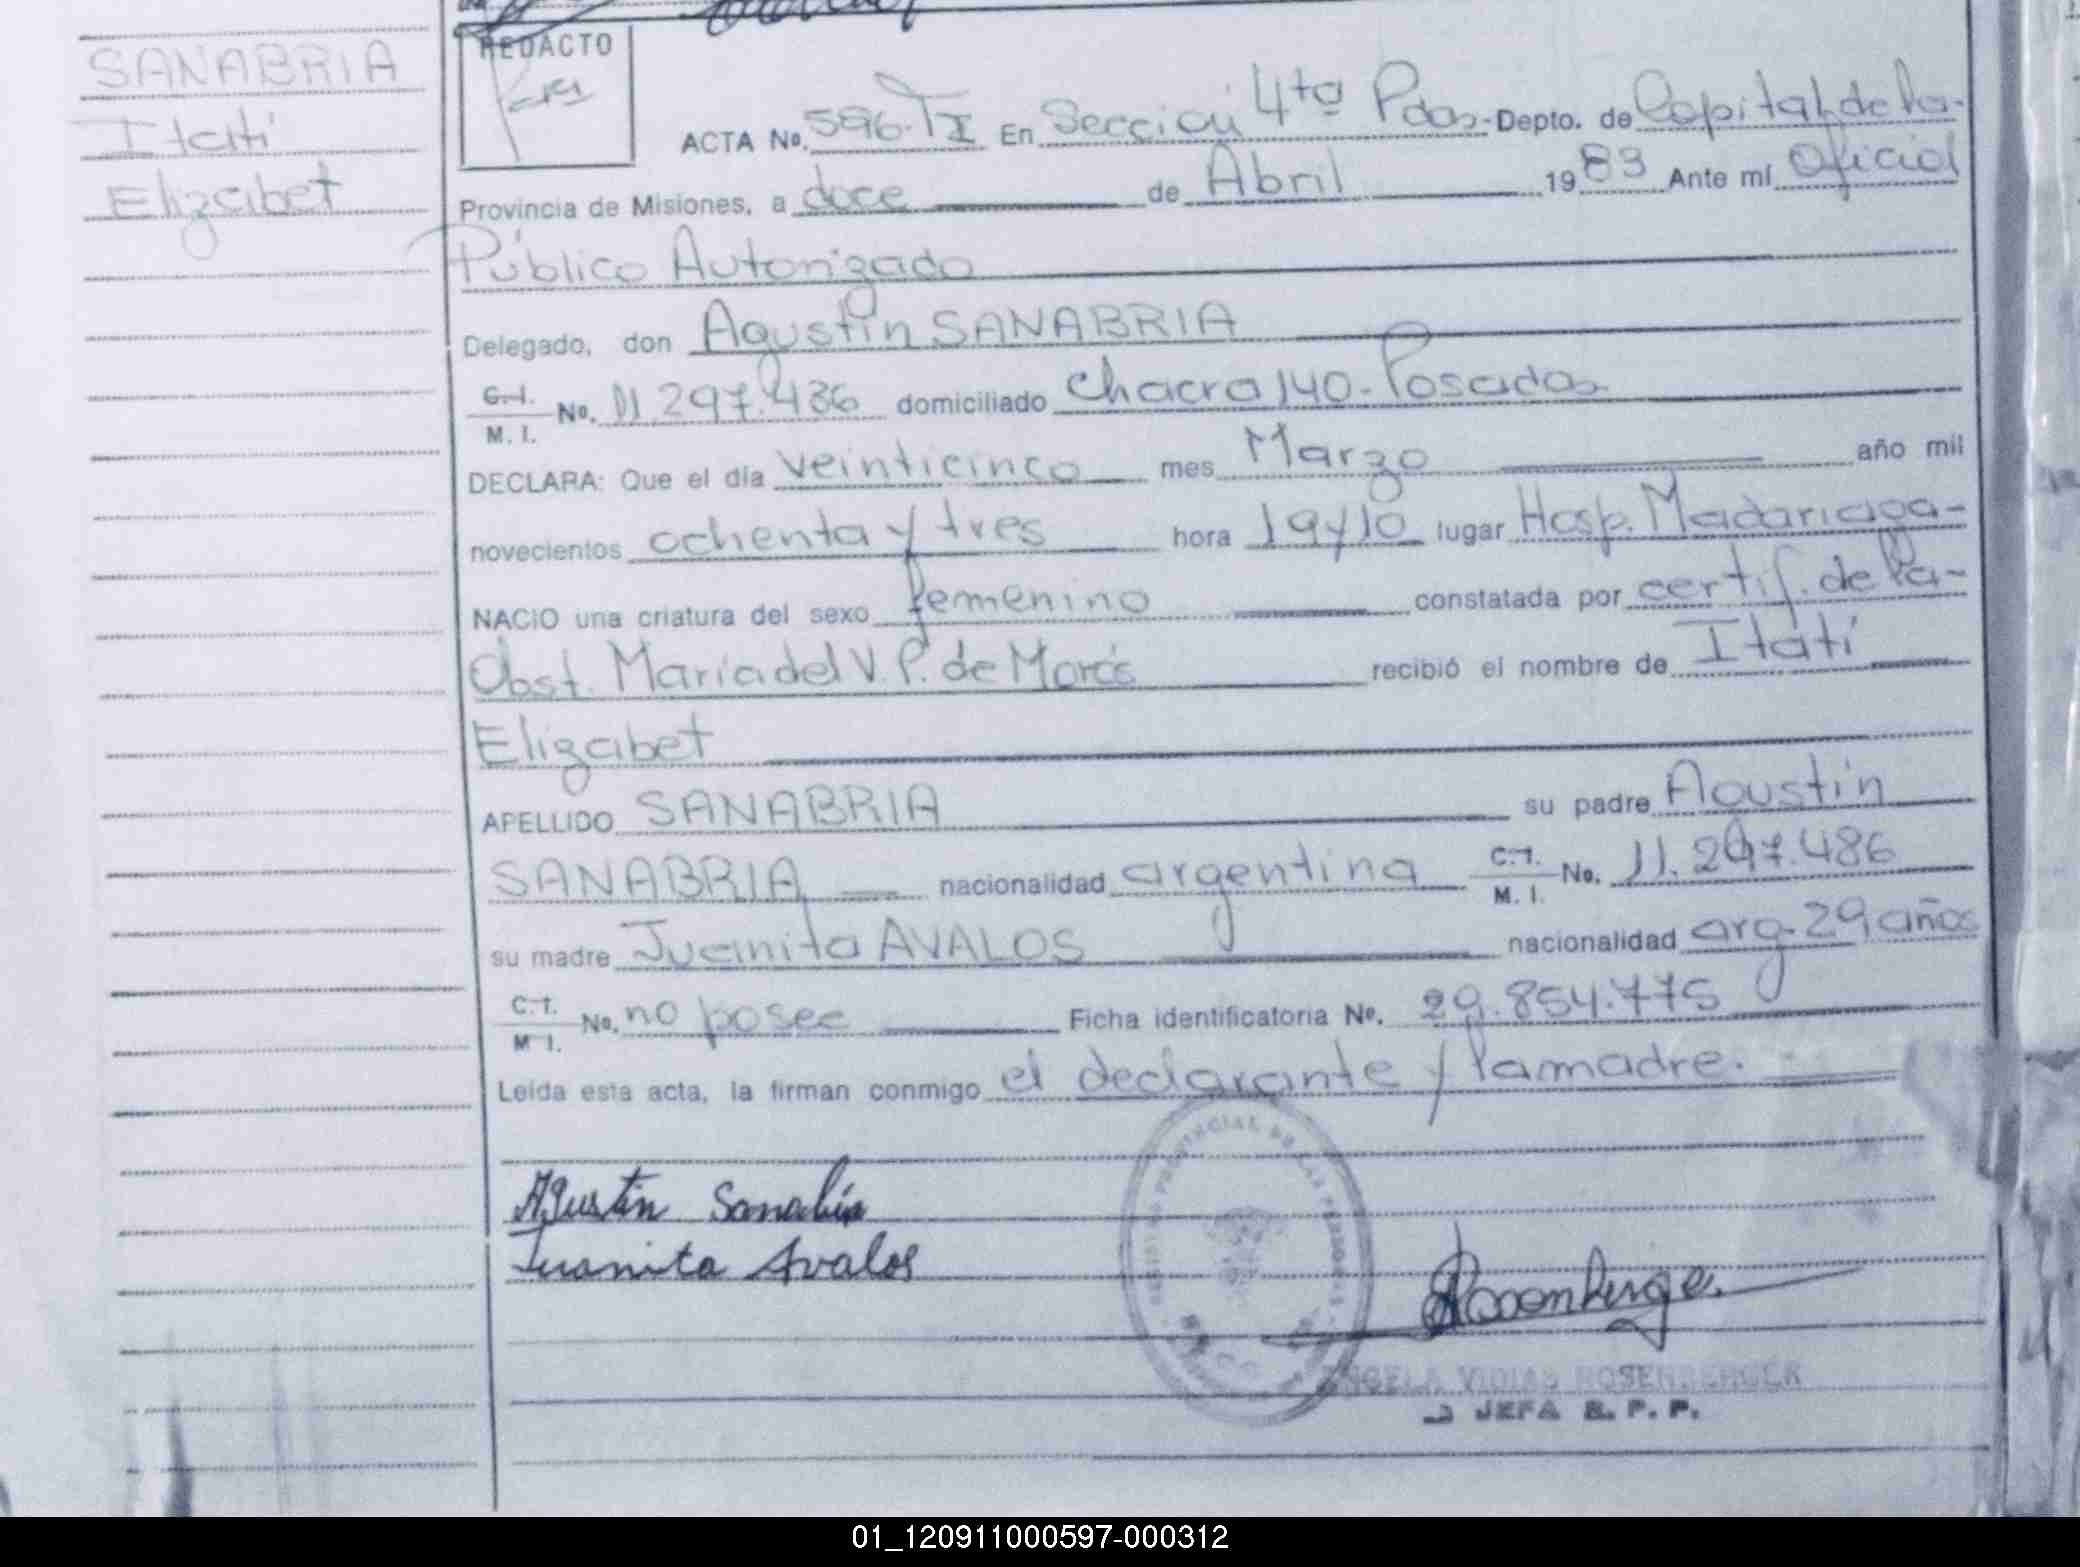 SANABRIA
Itatí
Elizabet
REDACTO
ACTA No. 596-TI En Sección 4ta Pdas- Depto. de Capital, de la-
Provincia de Misiones, a doce de Abril 1983 Ante mí Oficial
Público Autorizado
Delegado, don Agustín SANABRIA
C.I. M.I. No. 11.297.486 domiciliado Chacra 140-Posadas
DECLARA: Que el día veinticinco mes Marzo año mil
novecientos ochenta y tres hora 19y10 lugar Hosp. Madariaga-
NACIO una criatura del sexo femenino constatada por certif. de la-
Obst. María del V. P. de recibió el nombre de Itatí
Elizabet
APELLIDO SANABRIA su padre Agustín
SANABRIA nacionalidad argentina C.I. M.I. No. 11.297.486
su madre Juanita AVALOS nacionalidad arg. 29 años
C.I. M.I. No. no posee Ficha identificatoria No. 29.854.775
Leída esta acta, la firman conmigo el declarante y la madre.
Agustin Sanabria
Juanita Avalos
Rosenberge
ROSENBERGER
JEFA R. P. P.
01_120911000597-000312